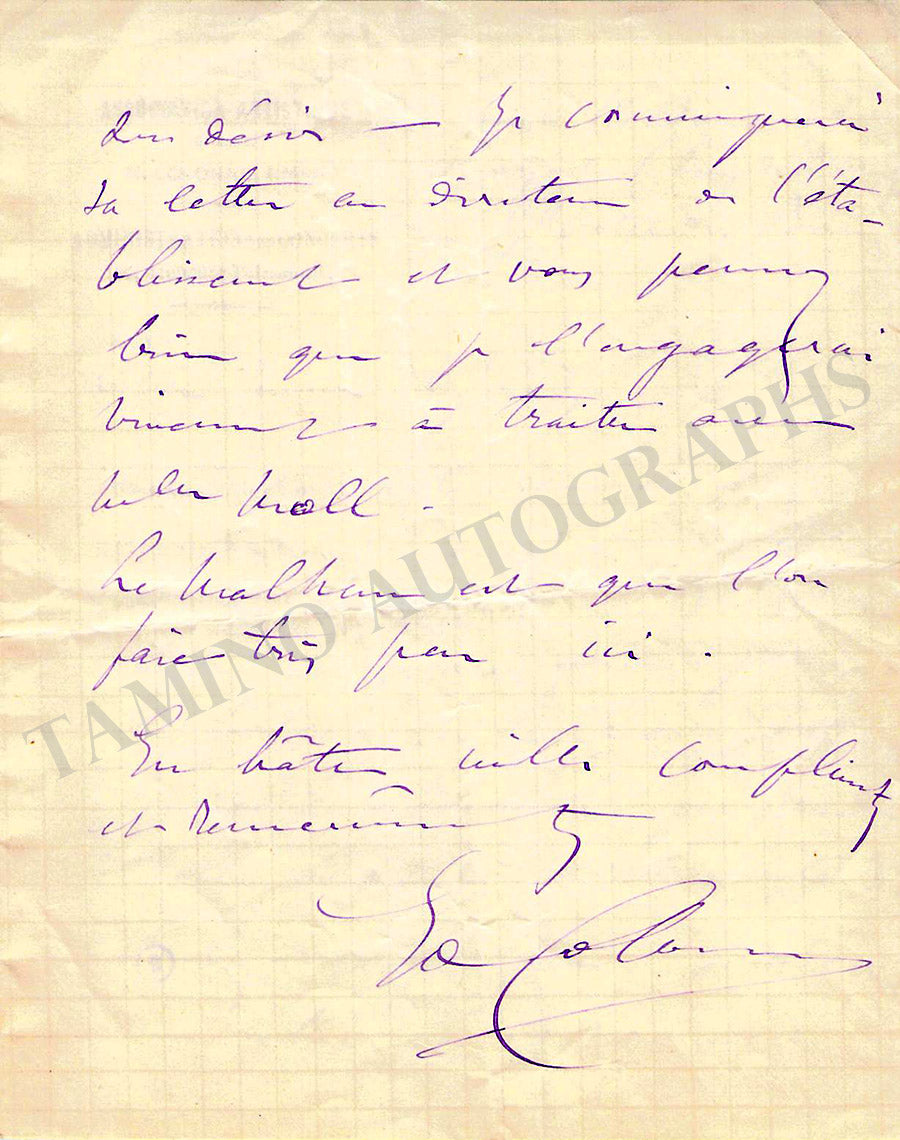 son désir — Je communiquerai
sa lettre au directeur de l'éta-
blissement et vous pensez
bien que je l'engagerai
vivement à traiter avec
Melle Moll.
Le malheur est que l'on
paie très peu ici.
En hâte, mille compliments
et remerciements
Ed Colonne
TAMINO AUTOGRAPHS